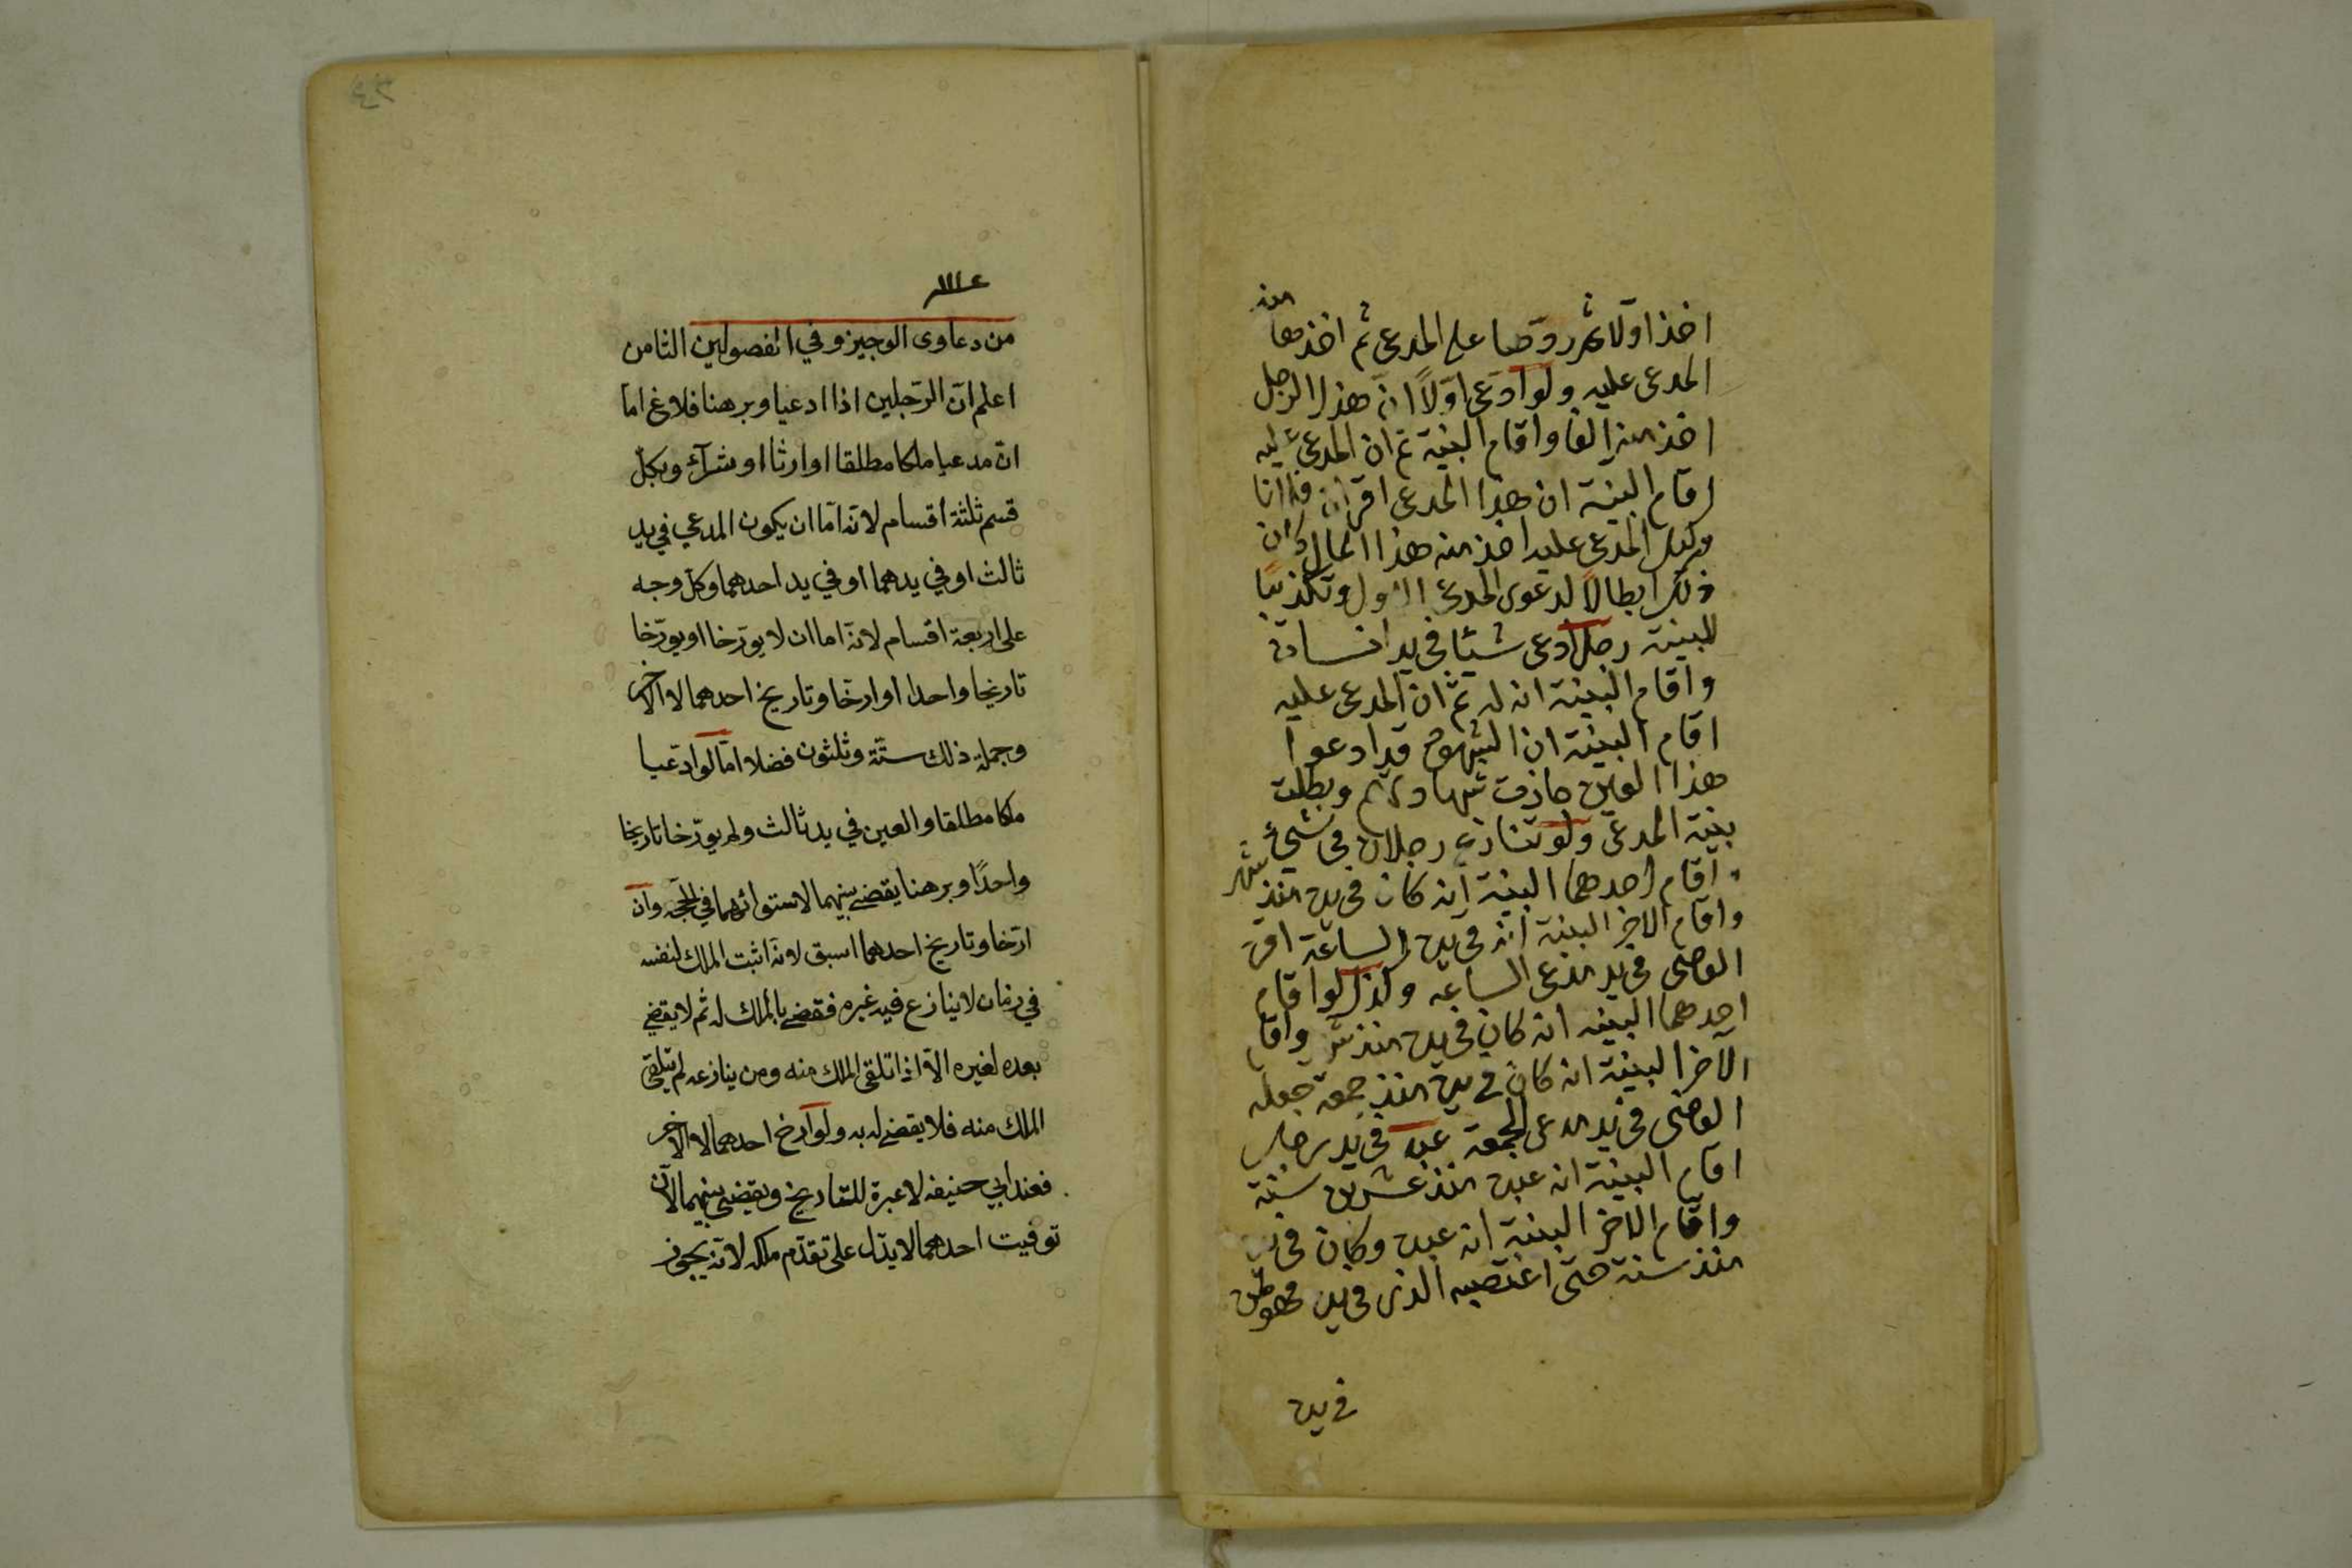 اخذ اولا ثم ردها على المدعى ثم اخذها منه
المدعى عليه ولو ادعى اولًا ان هذا الرجل
اخذ منه الفا واقام البينة ثم ان المدعى عليه
اقام البينة ان هذا المدعى اقر ان فلانا
وكيل المدعى عليه اخذ منه هذا المال كان
ذلك ابطالًا لدعوى المدعى الاول وتكذيبًا
للبينة رجل ادعى شيئا فى يد انسان
واقام البينة انه له ثم ان المدعى عليه
اقام البينة ان الشهود قد ادعوا
هذا العين جازت شهادتهم وبطلت
بينة المدعى ولو تنازع رجلان فى شئ
اقام احدهما البينة انه كان فى يده منذ شهر
واقام الاخر البينة انه فى يده الساعة اقره
القاضى فى يد مدعى الساعة وكذا لو اقام
احدهما البينة انه كان فى يده منذ شهر واقام
الآخر البينة انه كان فى يده منذ جمعة جعله
القاضى فى يد مدعى الجمعة عبد فى يد رجل
اقام البينة انه عبده منذ عشرين سنة
واقام الاخر البينة انه عبده وكان فى يده
منذ سنة حتى اغتصبه الذى فى يده فهو لمن
فى يده
من دعاوى الوجيز وفي الفصولين الثامن
اعلم ان الرّجلين اذا ادعيا وبرهنا فلا يخ اما
ان مدعيا ملكا مطلقا او ارثا او شرآء وبكل
قسم ثلثة اقسام لانه اما ان يكون المدعي في يد
ثالث او في يدهما او في يد احدهما وكل وجه
على اربعة اقسام لانه اما ان لا يورّخا او يورّخا
تاريخا واحدا او ارخا وتاريخ احدهما لا الاخر
وجملة ذلك ستّة وثلثون فضلا امّا لو ادّعيا
ملكا مطلقا والعين في يد ثالث ولم يورّخا تاريخا
واحدًا وبرهنا يقضى بينهما لاستوائهما في الحجّه وان
ارّخا وتاريخ احدهما اسبق لانه اثبت الملك لنفسه
في زمان لا ينازع فيه غيره فقضى بالملك له ثم لا يقضي
بعده لغيره الّا اذا تلقى الملك منه ومن ينازعه لم يتلقى
الملك منه فلا يقضى له به ولو ارخ احدهما لا الاخر
فعند ابي حنيفه لا عبرة للتاريخ ويقضى بينهما لان
توقيت احدهما لا يدّل على تقدّم ملكه لانه يجوز